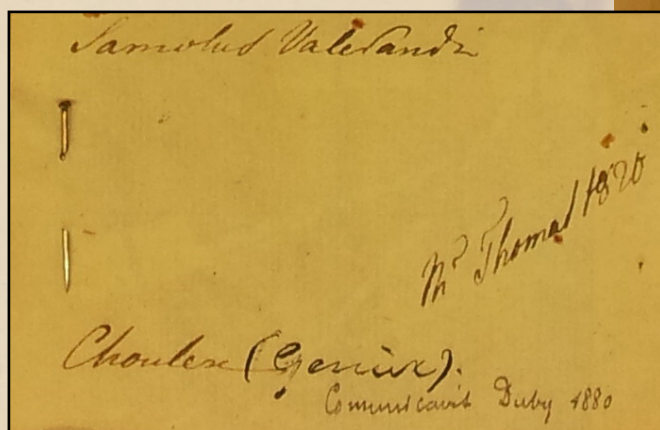 Samolus Valerandi
Mr Thomas 1820
Choulex (Genève).
Comunicavit Duby 1880